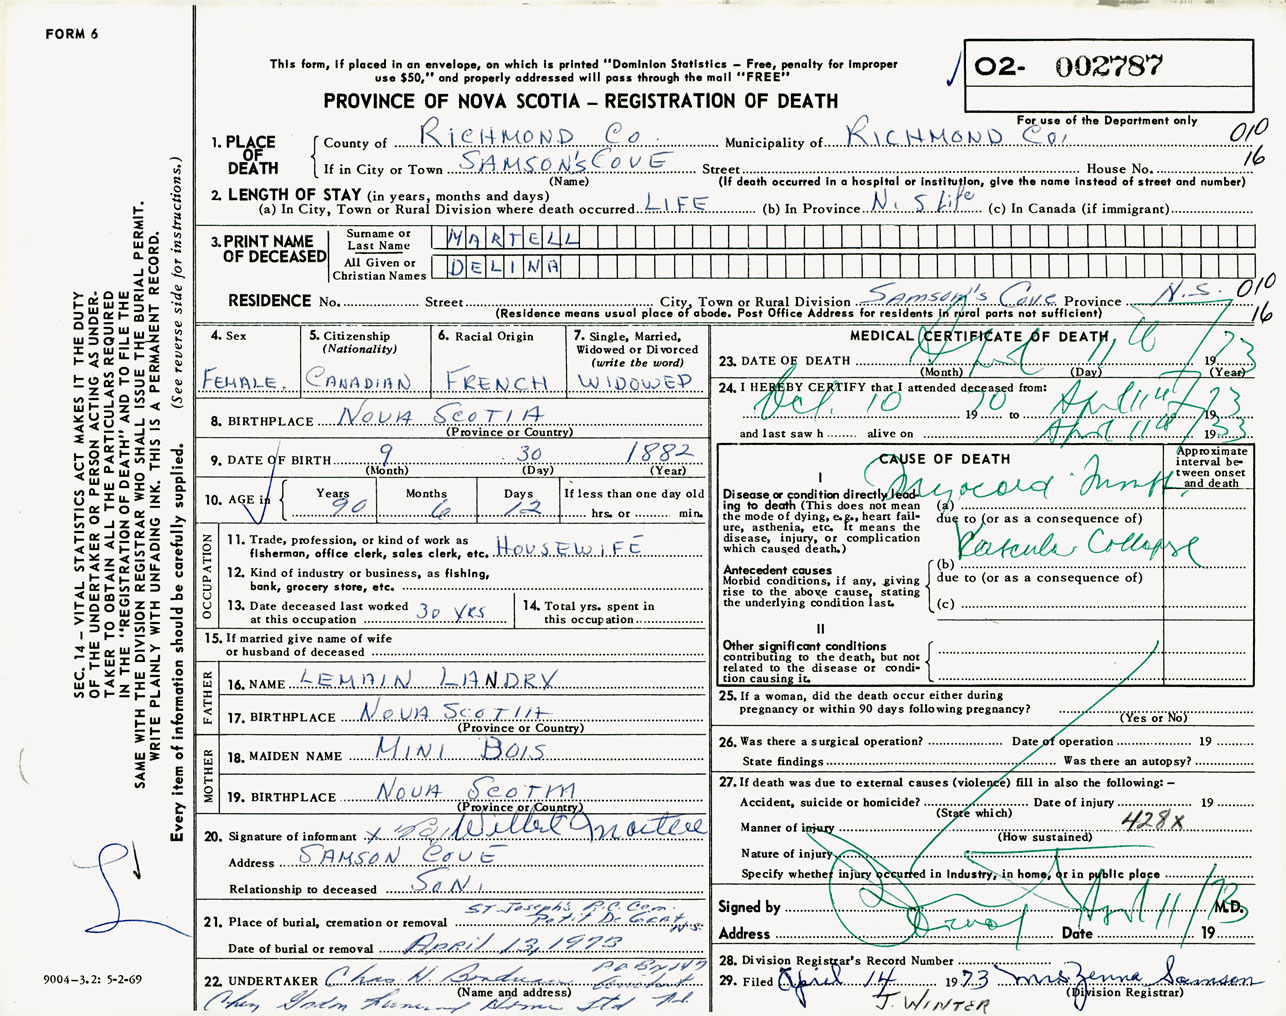 FORM 6
This form, if placed in an envelope, on which is printed "Dominion Statistics – Free, penalty for improper
use $50," and properly addressed will pass through the mail "FREE"
PROVINCE OF NOVA SCOTIA – REGISTRATION OF DEATH
O2- 002787
For use of the Department only
010
16
1. PLACE OF DEATH
County of RICHMOND Co. Municipality of RICHMOND Co.
If in City or Town SAMSON'S COVE Street House No.
(Name) (If death occurred in a hospital or institution, give the name instead of street and number)
2. LENGTH OF STAY (in years, months and days)
(a) In City, Town or Rural Division where death occurred LIFE (b) In Province N. S Life (c) In Canada (if immigrant)
3. PRINT NAME OF DECEASED
Surname or Last Name MARTELL
All Given or Christian Names DELINA
RESIDENCE No. Street City, Town or Rural Division Samson's Cove Province N.S. 010
(Residence means usual place of abode. Post Office Address for residents in rural parts not sufficient) 16
4. Sex
FEMALE.
5. Citizenship
(Nationality)
CANADIAN
6. Racial Origin
FRENCH
7. Single, Married,
Widowed or Divorced
(write the word)
WIDOWED
8. BIRTHPLACE NOVA SCOTIA
(Province or Country)
9. DATE OF BIRTH 9 30 1882
(Month) (Day) (Year)
10. AGE in
Years Months Days If less than one day old
90 6 12 hrs. or min.
OCCUPATION
11. Trade, profession, or kind of work as
fisherman, office clerk, sales clerk, etc. HOUSEWIFE
12. Kind of industry or business, as fishing,
bank, grocery store, etc.
13. Date deceased last worked
at this occupation 30 YRS
14. Total yrs. spent in
this occupation
15. If married give name of wife
or husband of deceased
FATHER
16. NAME LEMAIN LANDRY
17. BIRTHPLACE NOVA SCOTIA
(Province or Country)
MOTHER
18. MAIDEN NAME MINI BOIS
19. BIRTHPLACE NOVA SCOTIA
(Province or Country)
20. Signature of informant X
Address SAMSON COVE
Relationship to deceased SON.
21. Place of burial, cremation or removal ST Joseph's R.C. Cem.
Petit De Grat N.S.
Date of burial or removal APRIL 13, 1973
22. UNDERTAKER Chas. H.
(Name and address)
P.O. Box 147
Ltd
MEDICAL CERTIFICATE OF DEATH
23. DATE OF DEATH April 11th 1973
(Month) (Day) (Year)
24. I HEREBY CERTIFY that I attended deceased from:
Oct. 10 1970 to April 11th 1973
and last saw h alive on April 11th 1973
CAUSE OF DEATH
Approximate
interval be-
tween onset
and death
I
Disease or condition directly lead-
ing to death (This does not mean
the mode of dying, e.g., heart fail-
ure, asthenia, etc. It means the
disease, injury, or complication
which caused death.)
(a) Myocard
due to (or as a consequence of)
Antecedent causes
Morbid conditions, if any, giving
rise to the above cause, stating
the underlying condition last.
(b) Vascular Collapse
due to (or as a consequence of)
(c)
II
Other significant conditions
contributing to the death, but not
related to the disease or condi-
tion causing it.
25. If a woman, did the death occur either during
pregnancy or within 90 days following pregnancy?
(Yes or No)
26. Was there a surgical operation? Date of operation 19
State findings Was there an autopsy?
27. If death was due to external causes (violence) fill in also the following: –
Accident, suicide or homicide? Date of injury 19
(State which)
Manner of injury 428x
(How sustained)
Nature of injury
Specify whether injury occurred in industry, in home, or in public place
Signed by M.D.
Address Date April 11/73 19
28. Division Registrar's Record Number
29. Filed April 14 1973 Mrs Zenna Samson
(Division Registrar)
J. WINTER
SEC. 14 – VITAL STATISTICS ACT MAKES IT THE DUTY
OF THE UNDERTAKER OR PERSON ACTING AS UNDER-
TAKER TO OBTAIN ALL THE PARTICULARS REQUIRED
IN THE "REGISTRATION OF DEATH" AND TO FILE THE
SAME WITH THE DIVISION REGISTRAR WHO SHALL ISSUE THE BURIAL PERMIT.
WRITE PLAINLY WITH UNFADING INK. THIS IS A PERMANENT RECORD.
Every item of information should be carefully supplied. (See reverse side for instructions.)
9004–3.2: 5-2-69